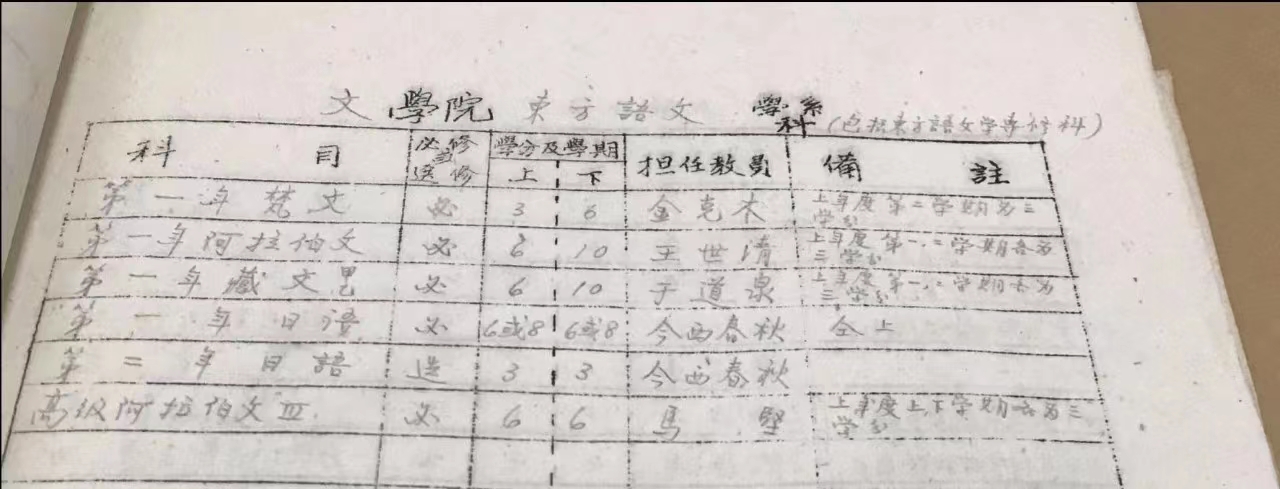 文學院 東方語文 學系科 (包括東方語文学專修科)
科目 必修或選修 學分及學期 上 下 担任教員 備註
第一年梵文 必 3 6 金克木 上年度第二学期为三学分
第一年阿拉伯文 必 6 10 王世清 上年度第一、二学期各为三学分
第一年藏文 必 6 10 于道泉 上年度第一、二学期各为三学分
第一年日語 必 6或8 6或8 今西春秋 仝上
第二年日語 选 3 3 今西春秋
高级阿拉伯文Ⅲ 必 6 6 馬堅 上年度上下学期各为三学分